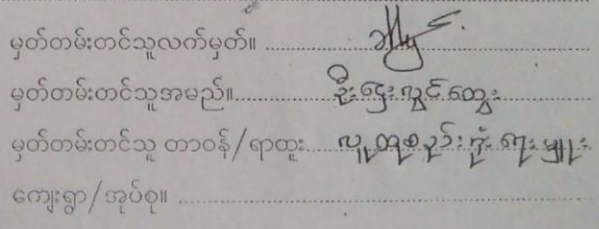 မှတ်တမ်းတင်သူလက်မှတ်။
မှတ်တမ်းတင်သူအမည်။ ဦးဌေးလွင်ထွေး
မှတ်တမ်းတင်သူ တာဝန်/ရာထူး
ကျေးရွာ/အုပ်စု။